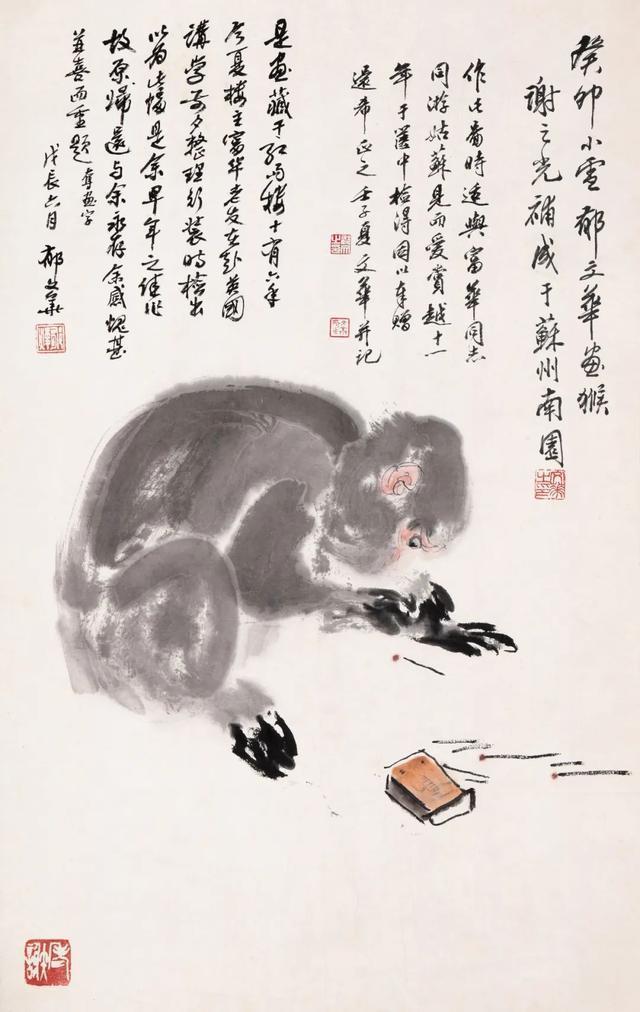 癸卯小雪郁文華畫猴
謝之光補成于蘇州南園
作此圖時适與富華同志
同游姑蘇見而愛賞越十一
年于箧中檢得因以奉贈
還希正之壬子夏文華并記
是畫藏于紅馬樓十有六年
今夏樓主富華老友在赴英國
講學前夕整理行裝時檢出
以為此幅是余早年之佳作
故原歸還與余永存余感愧甚
并喜而重題 奪畫字
戊辰六月 郁文華